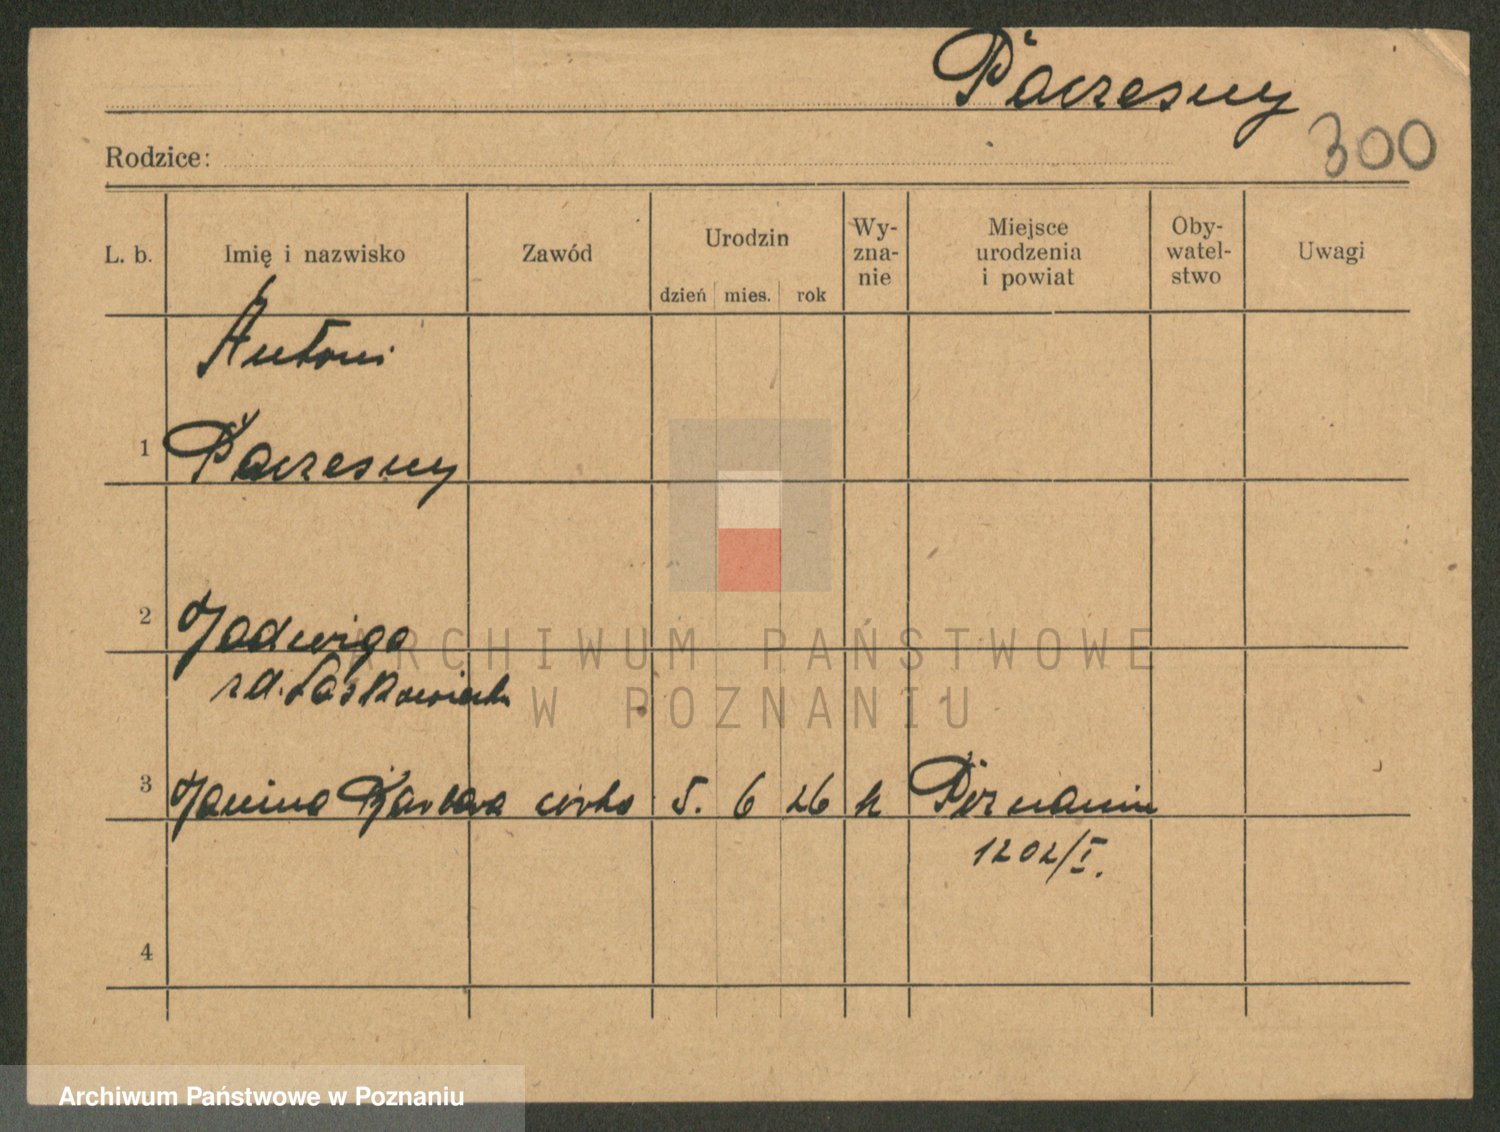 Paczesny
300
Rodzice:
L. b. Imię i nazwisko Zawód Urodzin dzień mies. rok Wy-zna-nie Miejsce urodzenia i powiat Oby-watel-stwo Uwagi
Antoni
1 Paczesny
2 Jadwiga
zd. Laskowiech
3 Janina Barbara córka 5. 6 26 k Poznaniu
1202/I.
4
ARCHIWUM PAŃSTWOWE
W POZNANIU
Archiwum Państwowe w Poznaniu